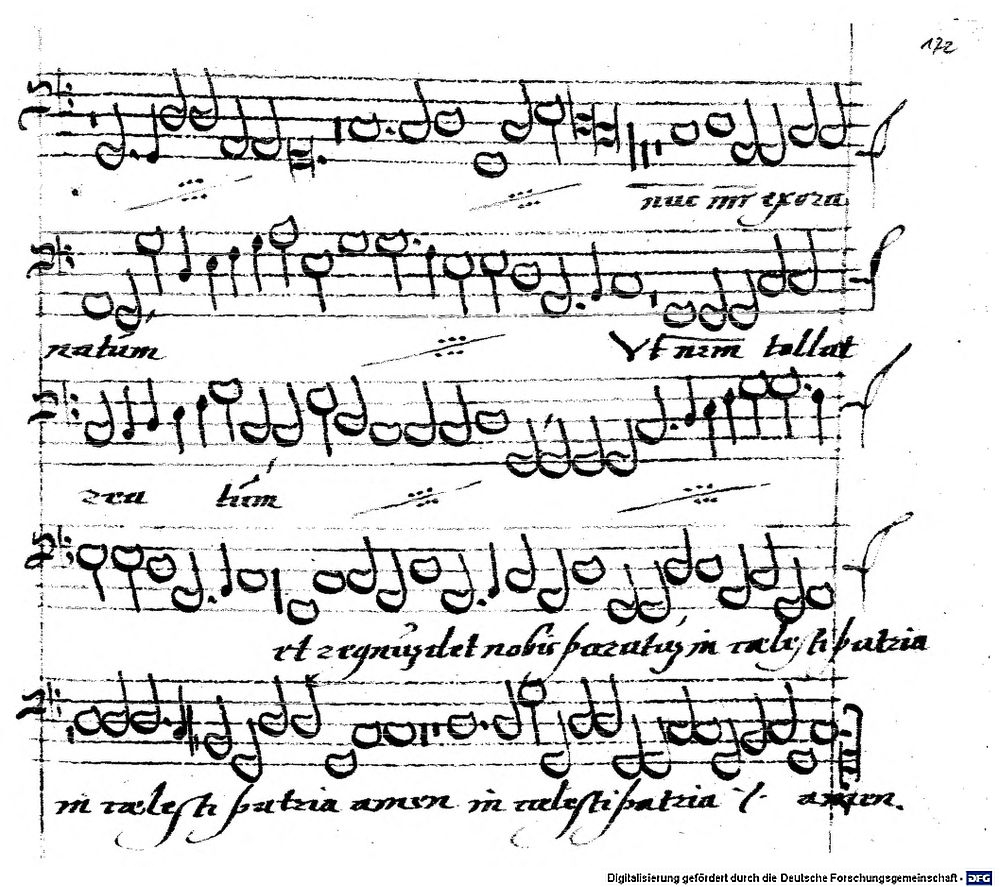 172
nuc mr exora
natum
Vt nrm tollat
rea tum
et regnu det nobis paratu in cælesti patria
in cælesti patria amen in cælesti patria ·/· amen.
Digitalisierung gefördert durch die Deutsche Forschungsgemeinschaft - DFG